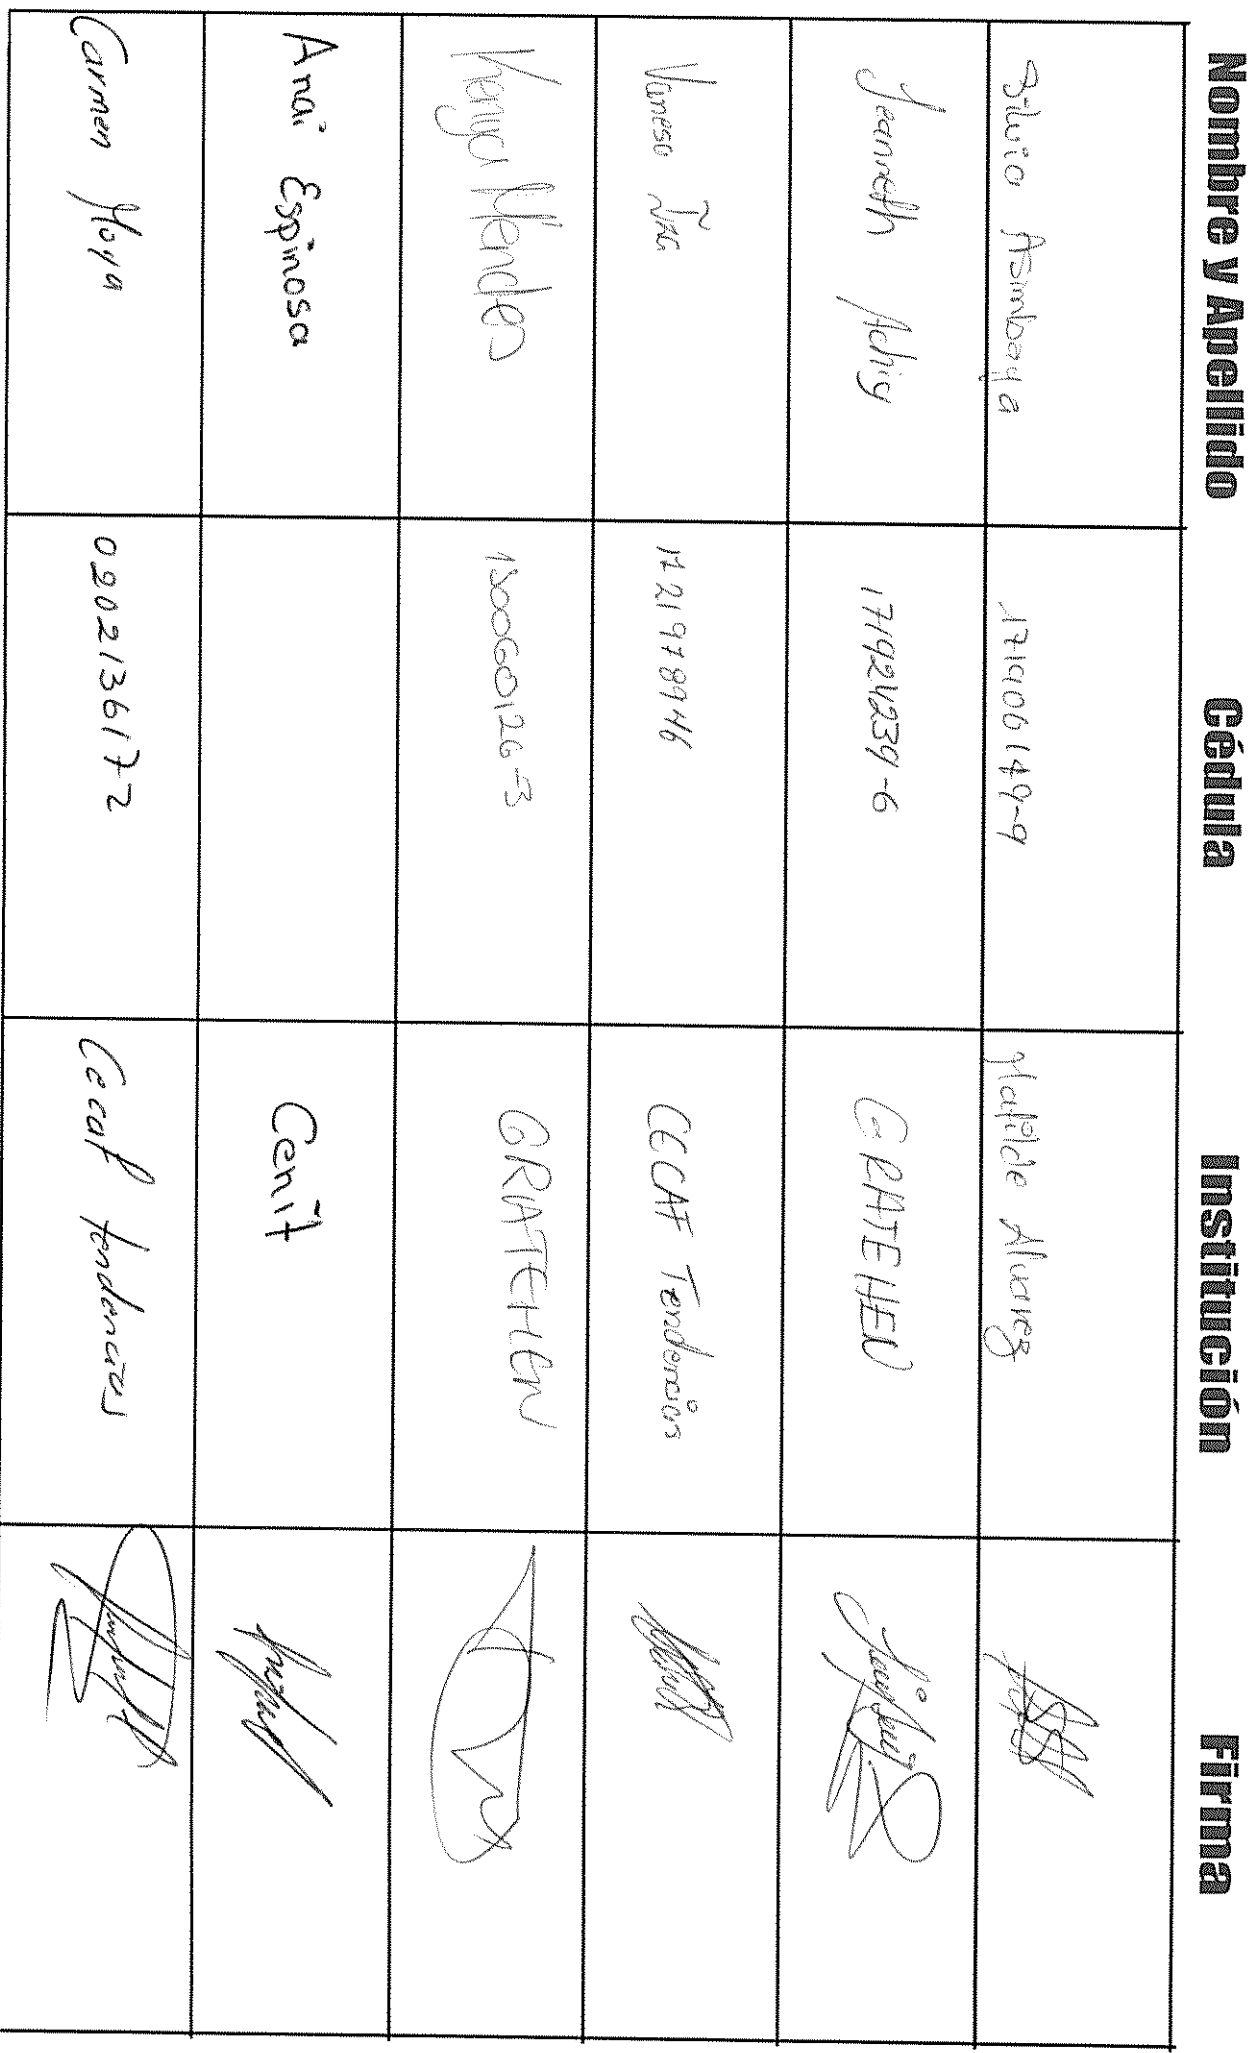 Nombre y Apellido Cédula Institución Firma
Silvia Asimbaya 171900149-9 Matilde Alvarez
Jeanneth Achig 171924239-6 GRATEHEN
Vanessa 1721978946 CECAF Tendencias
Kenya Mendes 130060126-3 GRATEHEN
Anai Espinosa Cenit
Carmen Moya 0202136172 Cecaf tendencias